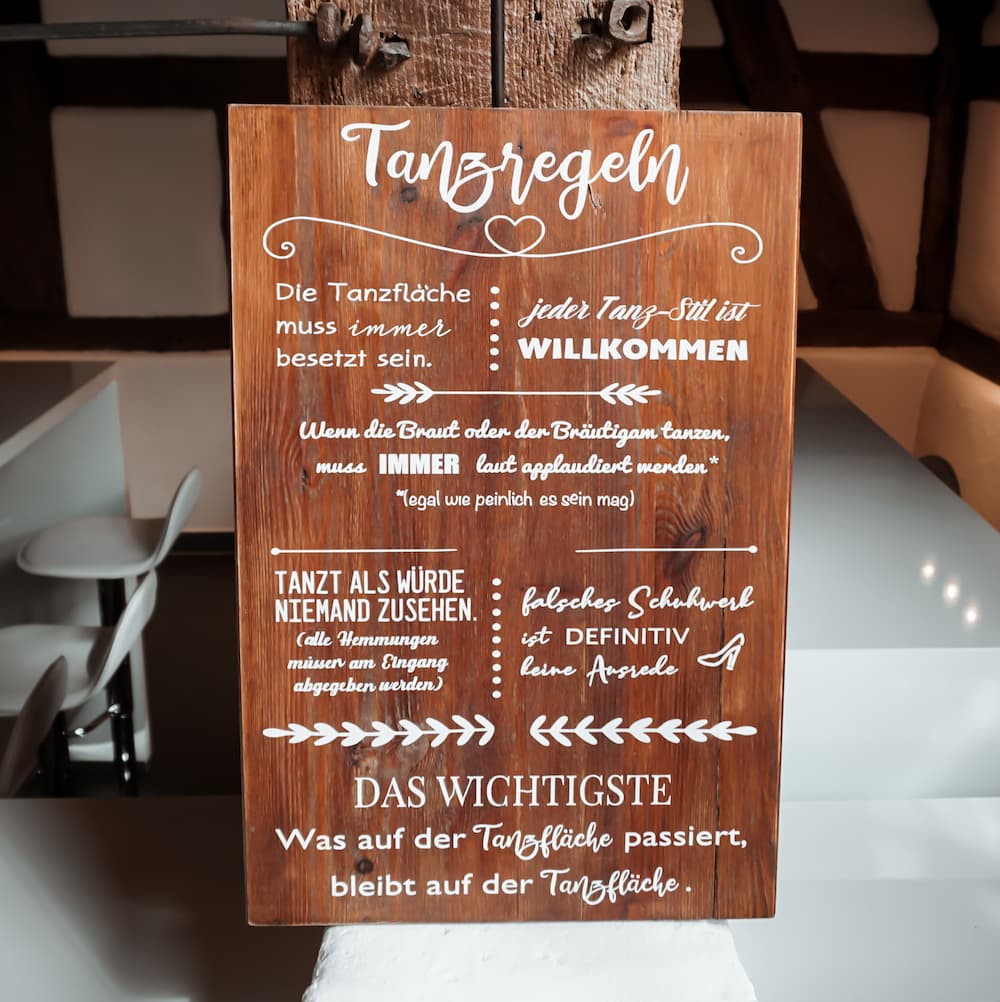 Tanzregeln
Die Tanzfläche
muss immer
besetzt sein.
jeder Tanz-Stil ist
WILLKOMMEN
Wenn die Braut oder der Bräutigam tanzen,
muss IMMER laut applaudiert werden*
*(egal wie peinlich es sein mag)
TANZT ALS WÜRDE
NIEMAND ZUSEHEN.
(alle Hemmungen
müssen am Eingang
abgegeben werden)
falsches Schuhwerk
ist DEFINITIV
keine Ausrede
DAS WICHTIGSTE
Was auf der Tanzfläche passiert,
bleibt auf der Tanzfläche.